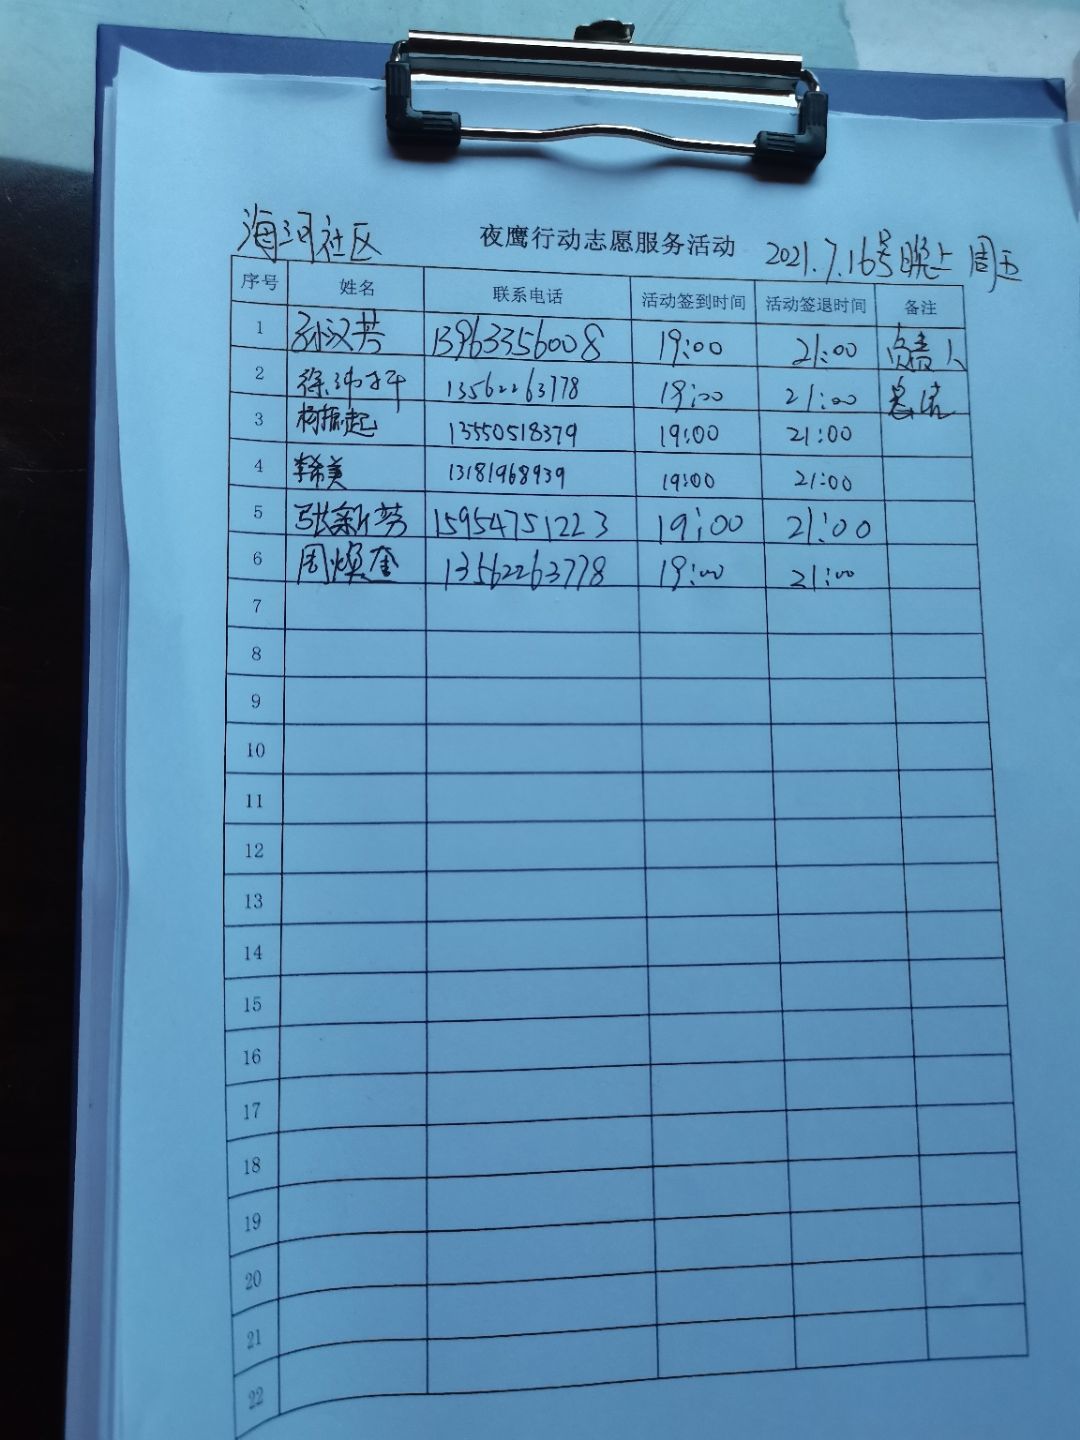 海河社区 夜鹰行动志愿服务活动 2021.7.16号晚上 周五
序号 姓名 联系电话 活动签到时间 活动签退时间 备注
1 孙汉芳 13963356008 19:00 21:00 负责人
2 徐 13562263778 19:00 21:00
3 杨振起 13550518379 19:00 21:00
4 李希美 13181968939 19:00 21:00
5 张新芳 15954751223 19:00 21:00
6 周焕奎 13562263778 19:00 21:00
7
8
9
10
11
12
13
14
15
16
17
18
19
20
21
22